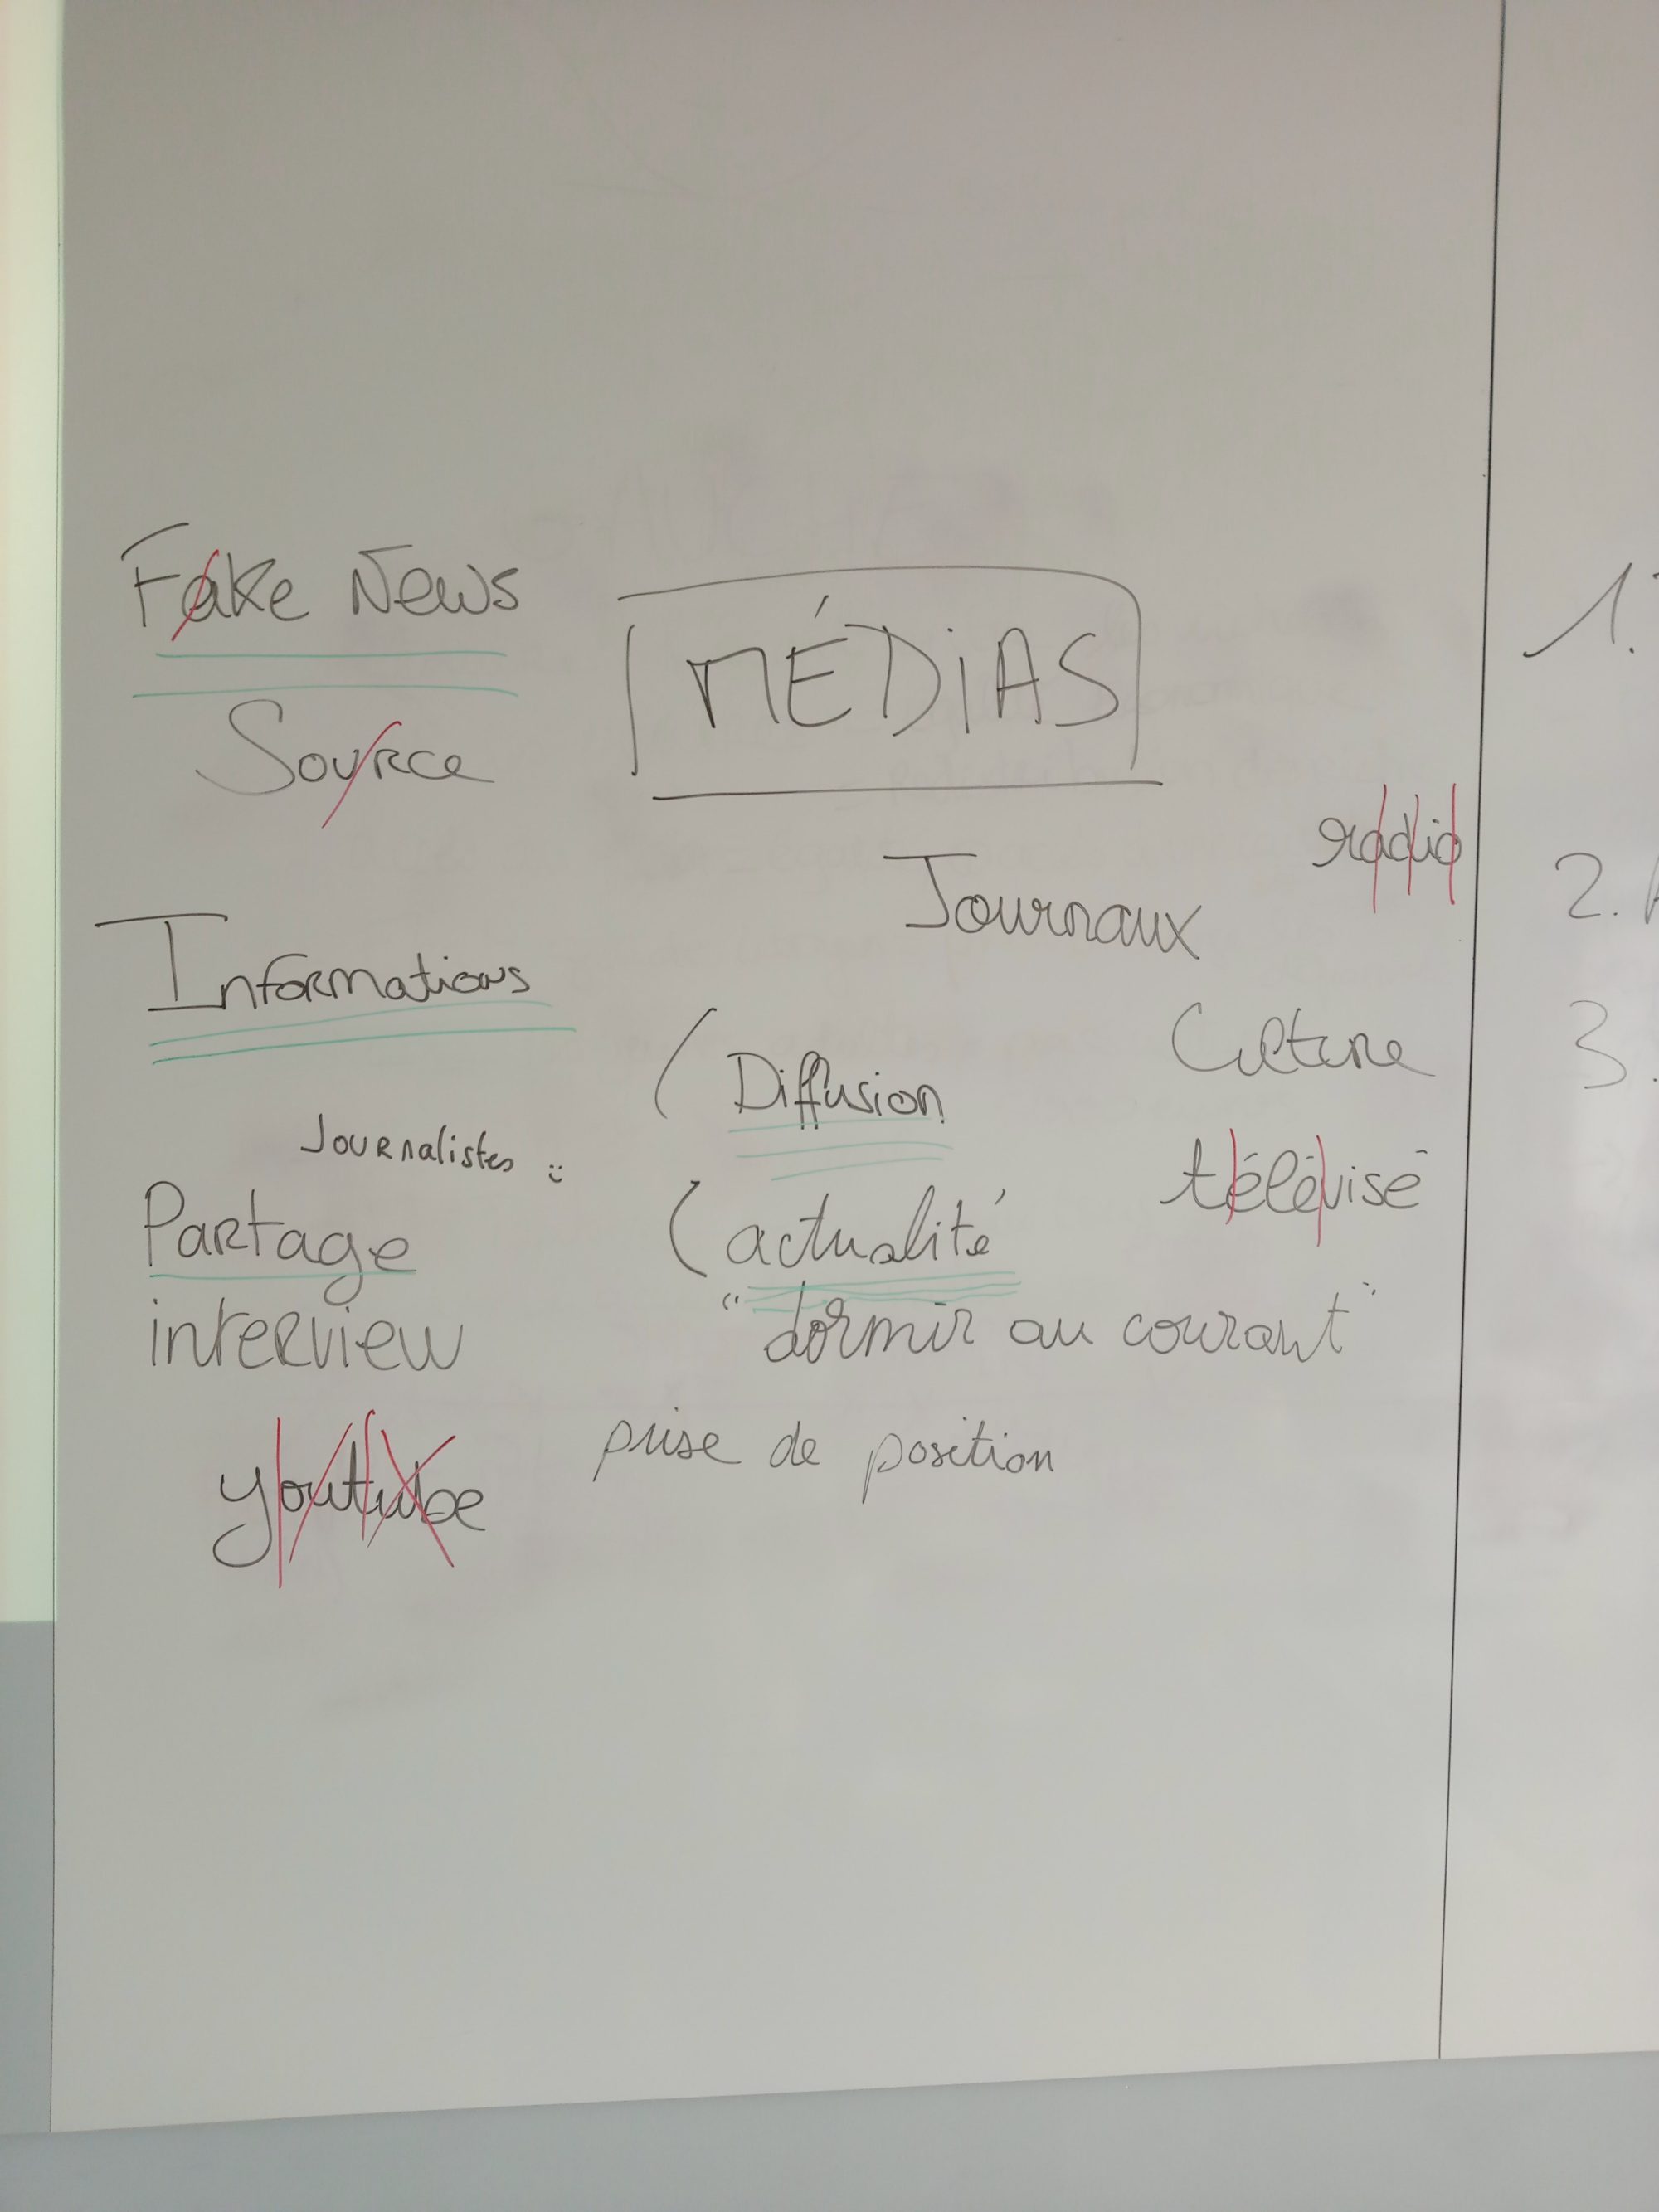 Fake News
MÉDIAS
Source
radio
Journaux
Informations
Culture
Diffusion
Journalistes :
télévisé
Partage
(actualité
interview
"dormir au courant"
prise de position
youtube
1.
2.
3.